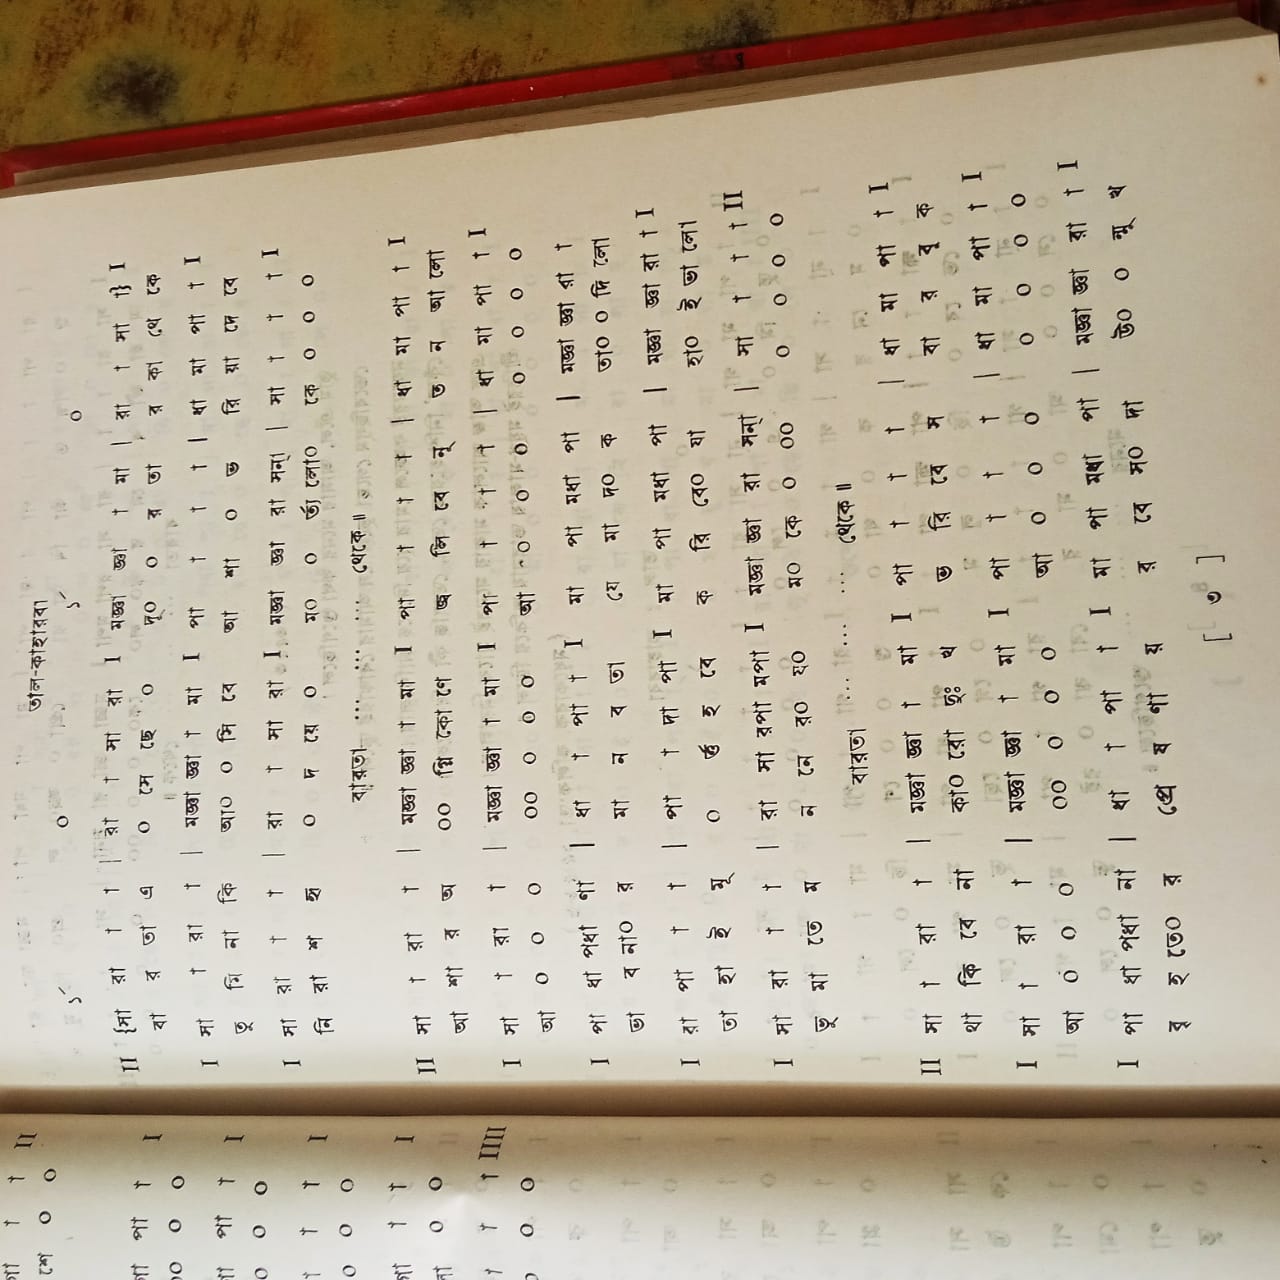 তাল-কাহারবা
১´ ০ ১´ ০
II {সা রা া া | রা া সা রা I মজ্ঞা জ্ঞা া মা | রা া সা া} I
বা র তা এ ০ সে ছে ০ দূ০ ০ র তা র কা থে কে
I সা া রা া | মজ্ঞা জ্ঞা া মা I পা া া া | ধা মা পা া I
তু মি না কি আ০ ০ সি বে আ শা ০ ভ রি য়া দে বে
I সা রা া া | রা া সা রা I মজ্ঞা জ্ঞা রা সন্‌া | সা া া া I
নি রা শ হৃ ০ দ য়ে ০ ম০ ০ র্ত্য লো০ কে ০ ০ ০
বারতা... ... ... ... থেকে॥
II সা া রা া | মজ্ঞা জ্ঞা া মা I পা া া া | ধা মা পা া I
আ শা র অ ০০ গ্নি কো ণে জ্ব লি বে নূ ত ন আ লো
I সা া রা া | মজ্ঞা জ্ঞা া মা I পা া া া | ধা মা পা া I
আ ০ ০ ০ ০০ ০ ০ ০ আ ০ ০ ০ ০ ০ ০ ০
I পা ধা পধা ণা | ধা া পা া I মা পা মধা পা | মজ্ঞা জ্ঞা রা া
ভা ব না০ র মা ন ব তা যে মা দ০ ক তা০ ০ দি লো
I রা পা া া | পা া দা পা I মা পা মধা পা | মজ্ঞা জ্ঞা রা া I
তা হা ই মূ ০ র্ত হ বে ক রি বে০ যা হা০ ই ভা লো
I সা রা া া | রা সা রপা মপা I মজ্ঞা জ্ঞা রা সন্‌া | সা া া া II
তু মা তে ম ন নে র০ য০ ম০ কে ০ ০০ ০ ০ ০ ০
বারতা ... ... ... ... থেকে॥
II সা া রা া | মজ্ঞা জ্ঞা া মা I পা া া া | ধা মা পা া I
থা কি বে না কা০ রো দুঃ খ ভ রি বে স বা র বু ক
I সা া রা া | মজ্ঞা জ্ঞা া মা I পা া া া | ধা মা পা া I
আ ০ ০ ০ ০০ ০ ০ ০ আ ০ ০ ০ ০ ০ ০ ০
I পা ধা পধা না | ধা া পা া I মা পা মধা পা | মজ্ঞা জ্ঞা রা া I
বৃ হ তে০ র প্রে ষ ণা য় র বে স০ দা উ০ ০ ন্মু খ
[ ৩ ]